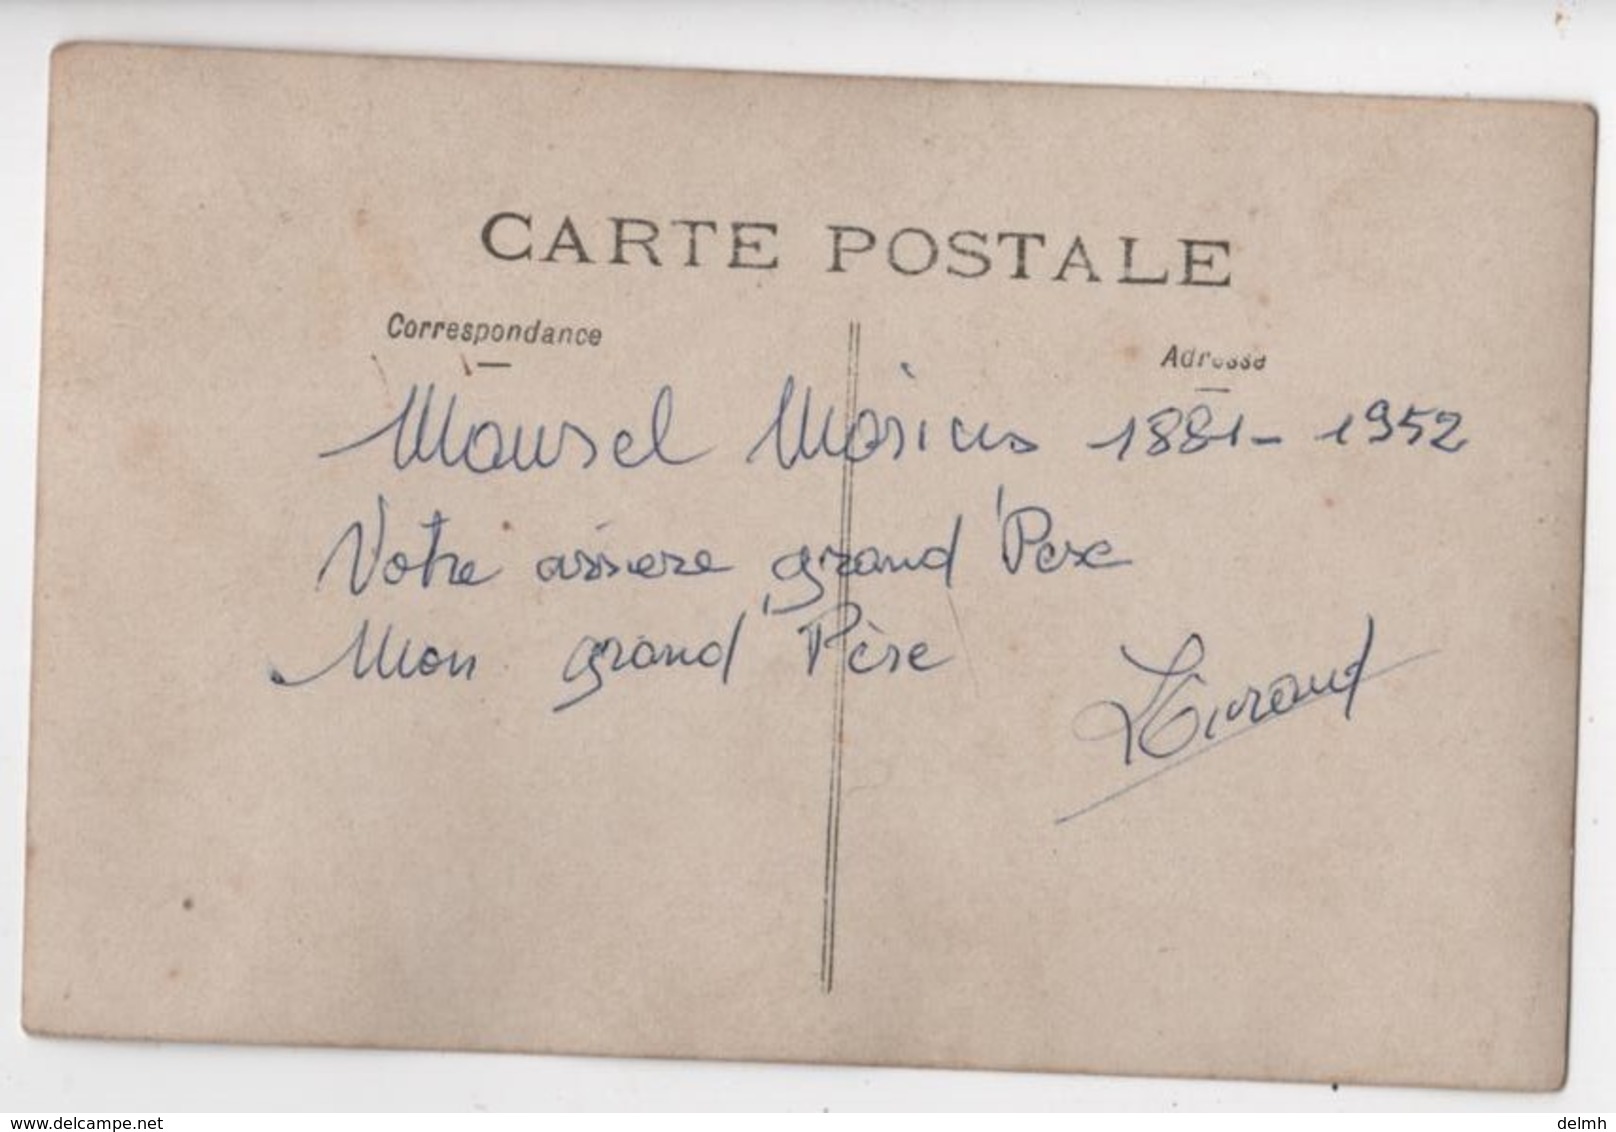 CARTE POSTALE
Correspondance
Adresse
Maurel Marius 1881-1952
Votre arriere grand Pere
Mon grand Père
www.delcampe.net
delmh